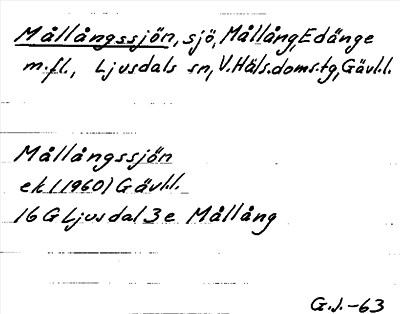 Mållångssjön, sjö, Mållång, Edänge
m.fl., Ljusdals sn, V.Häls.doms.tg, Gävl.l.
Mållångssjön
ek (1960) Gävl.l.
16 G Ljusdal 3 e Mållång
G.J.-63